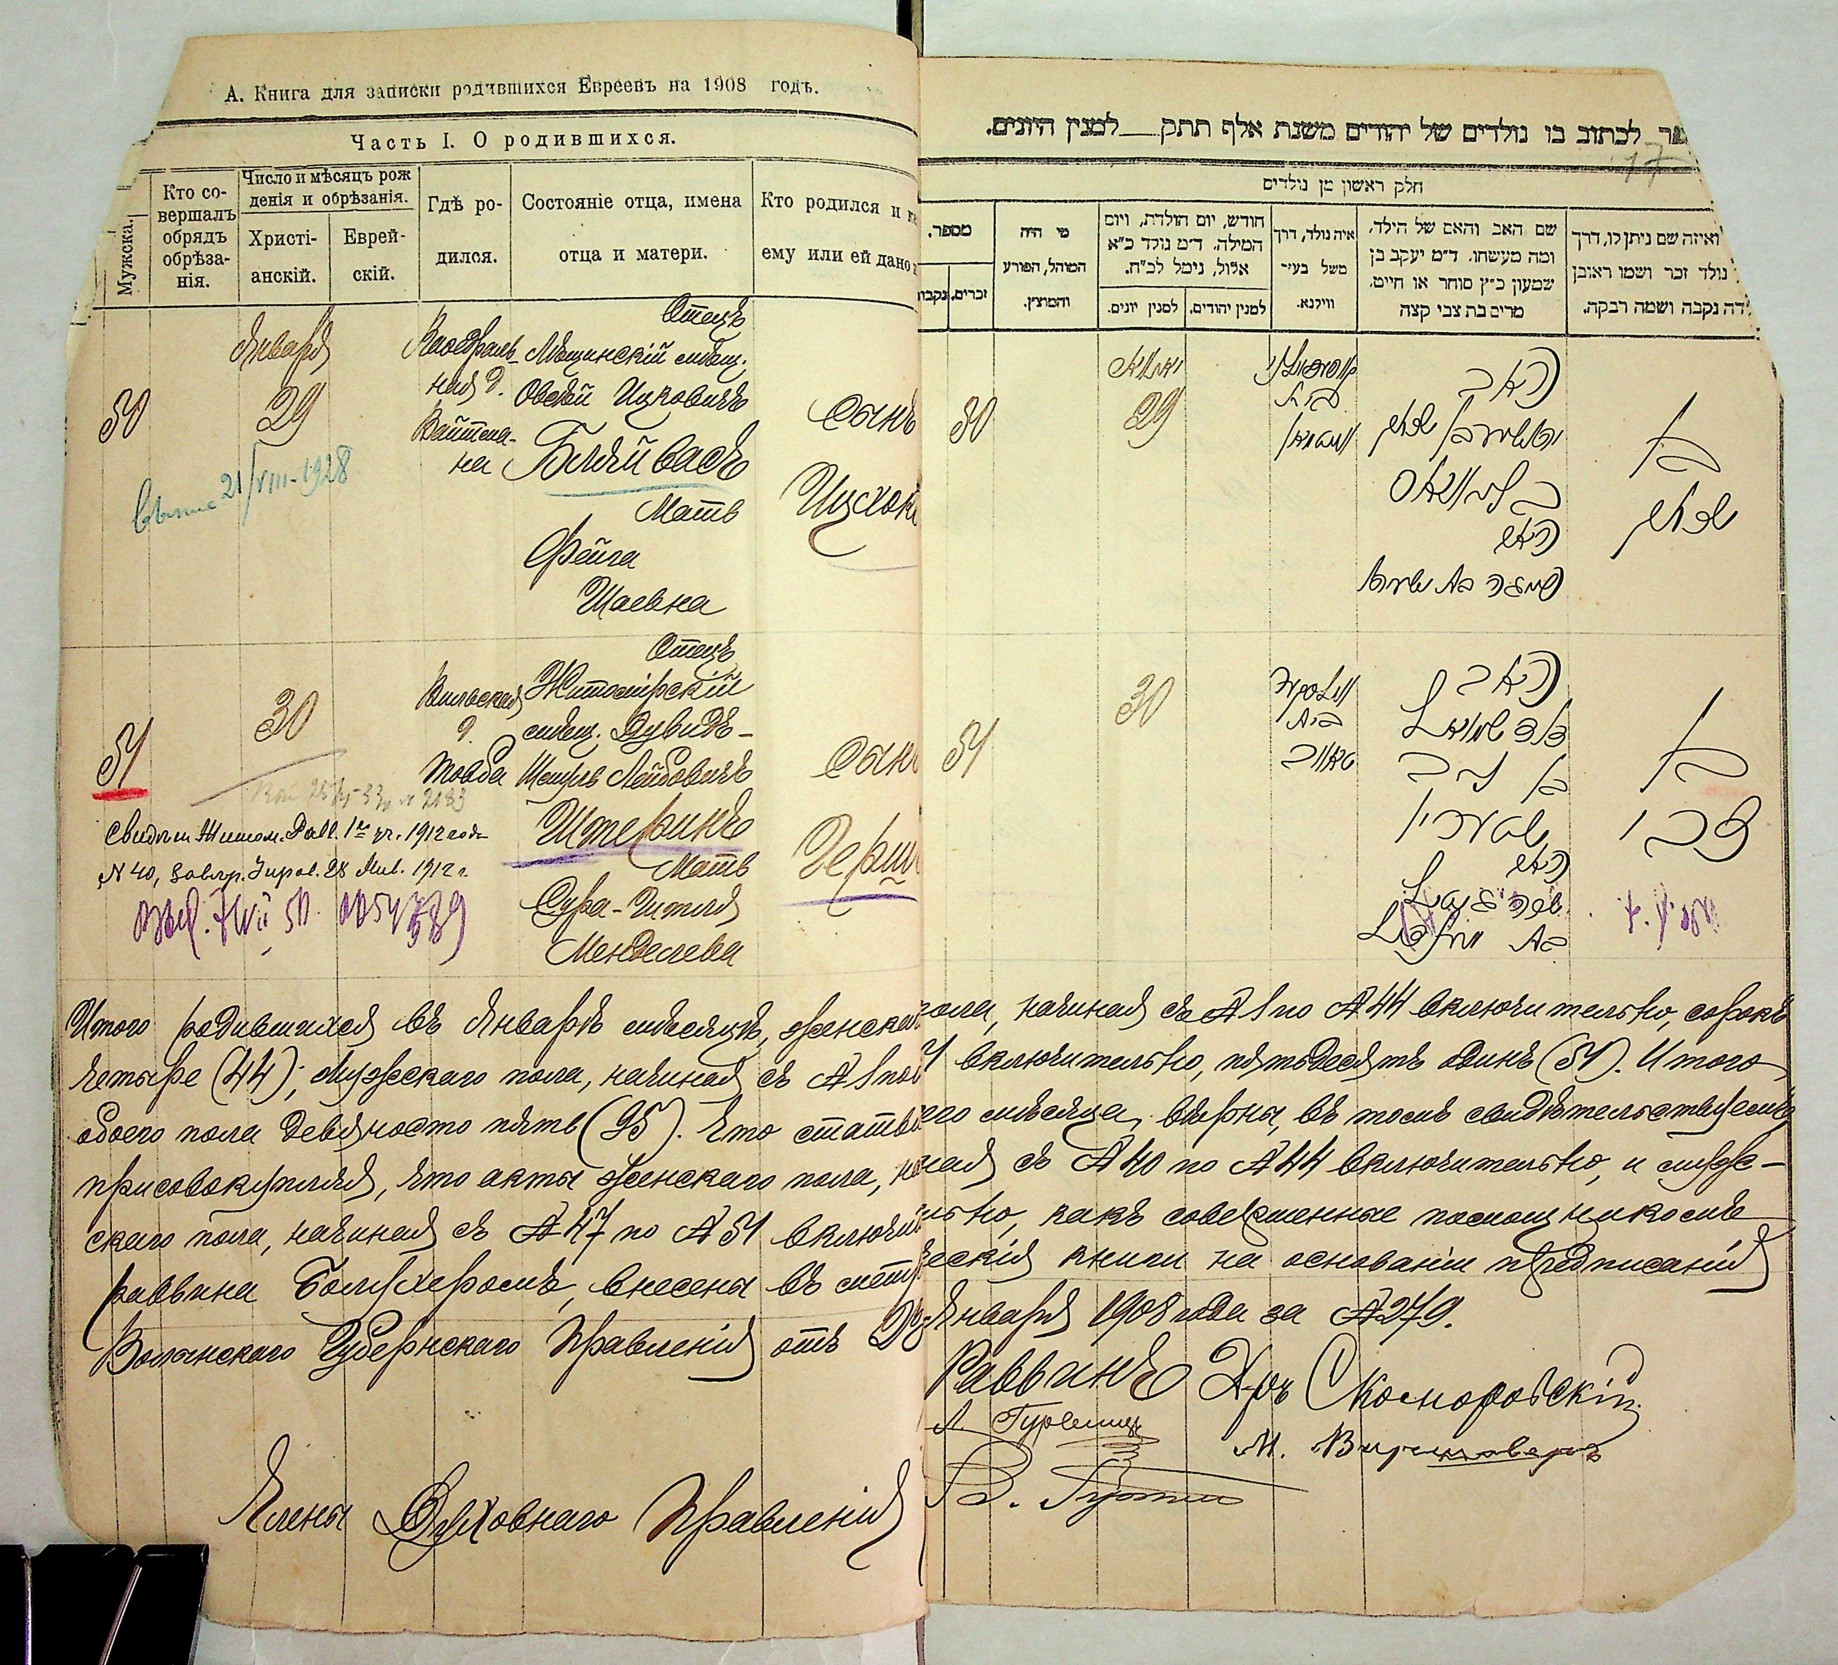 А. Книга для записки родившихся Евреевъ на 1908 годъ.
Часть I. О родившихся.
Мужска.
Кто со-
вершалъ
обрядъ
обрѣза-
нія.
Число и мѣсяцъ рож
денія и обрѣзанія.
Христі-
анскій.
Еврей-
скій.
Гдѣ ро-
дился.
Состояніе отца, имена
отца и матери.
Кто родился и
ему или ей дано
50
Января
29
Каѳедраль-
ная д.
Вайтма-
на
Отецъ
Мѣщанскій мѣщ.
Овсѣй Ицковичъ
Бляйвасъ
Мать
Фейга
Шаевна
сынъ
Ицхокъ
21/VIII-1928
51
30
Вильская
д.
Товба
Отецъ
Житомірскій
мѣщ. Дувидъ-
Шмуль Лейбовичъ
Штеринъ
Мать
Сура-Гитля
Менделева
сынъ
Герш
Свидѣт. Житом. Равв. 1го уч. 1912 года
N 40,
1912 г.
לכתוב בו נולדים של יהודים משנת אלף תתק
למנין היונים.
17
חלק ראשון מן נולדים
מספר.
זכרים.
מי היה
המוהל, הפורע
והמוצץ.
חודש, יום הולדת, ויום
המילה. ד״מ נולד כ״א
אלול, נימל לכ״ח.
למנין יונים.
למנין יהודים.
איה נולד, דרך
משל בעיר
ווילנא.
שם האב והאם של הילד,
ומה מעשהו. ד״מ יעקב בן
שמעון כ״ץ סוחר או חיים.
מרים בת צבי קצה
ואיזה שם ניתן לו, דרך
נולד זכר ושמו ראובן
דה נקבה ושמה רבקה.
50
יאנואר
29
בית
האב
בלייוואס
האם
פייגה בת ישעיה
בן
יצחק
51
30
בית
טאווב
האב
דוד שמואל
בן ליב
שטערין
האם
שרה גיטל
בת מענדל
בן
צבי
Итого родившихся въ Январѣ мѣсяцѣ, женскаго пола, начиная съ №1 по №44 включительно, сорокъ
четыре (44); мужскаго пола, начиная съ №1 по 51 включительно, пятьдесятъ одинъ (51). Итого
обоего пола девяносто пять (95). Что статьи сего мѣсяца, вѣрны, въ томъ свидѣтельствуемъ
присовокупляя, что акты женскаго пола, начиная съ №40 по №44 включительно, и муж-
скаго пола, начиная съ №47 по №51 включительно, какъ совершенные помощникомъ
раввина Бомухеромъ, внесены въ метрическія книги на основаніи предписанія
Волынскаго Губернскаго Правленія отъ Января 1908 года за №279.
Раввинъ Д-ръ Скоморовскій
Л. Гурвицъ
М.
Члены Духовнаго Правленія